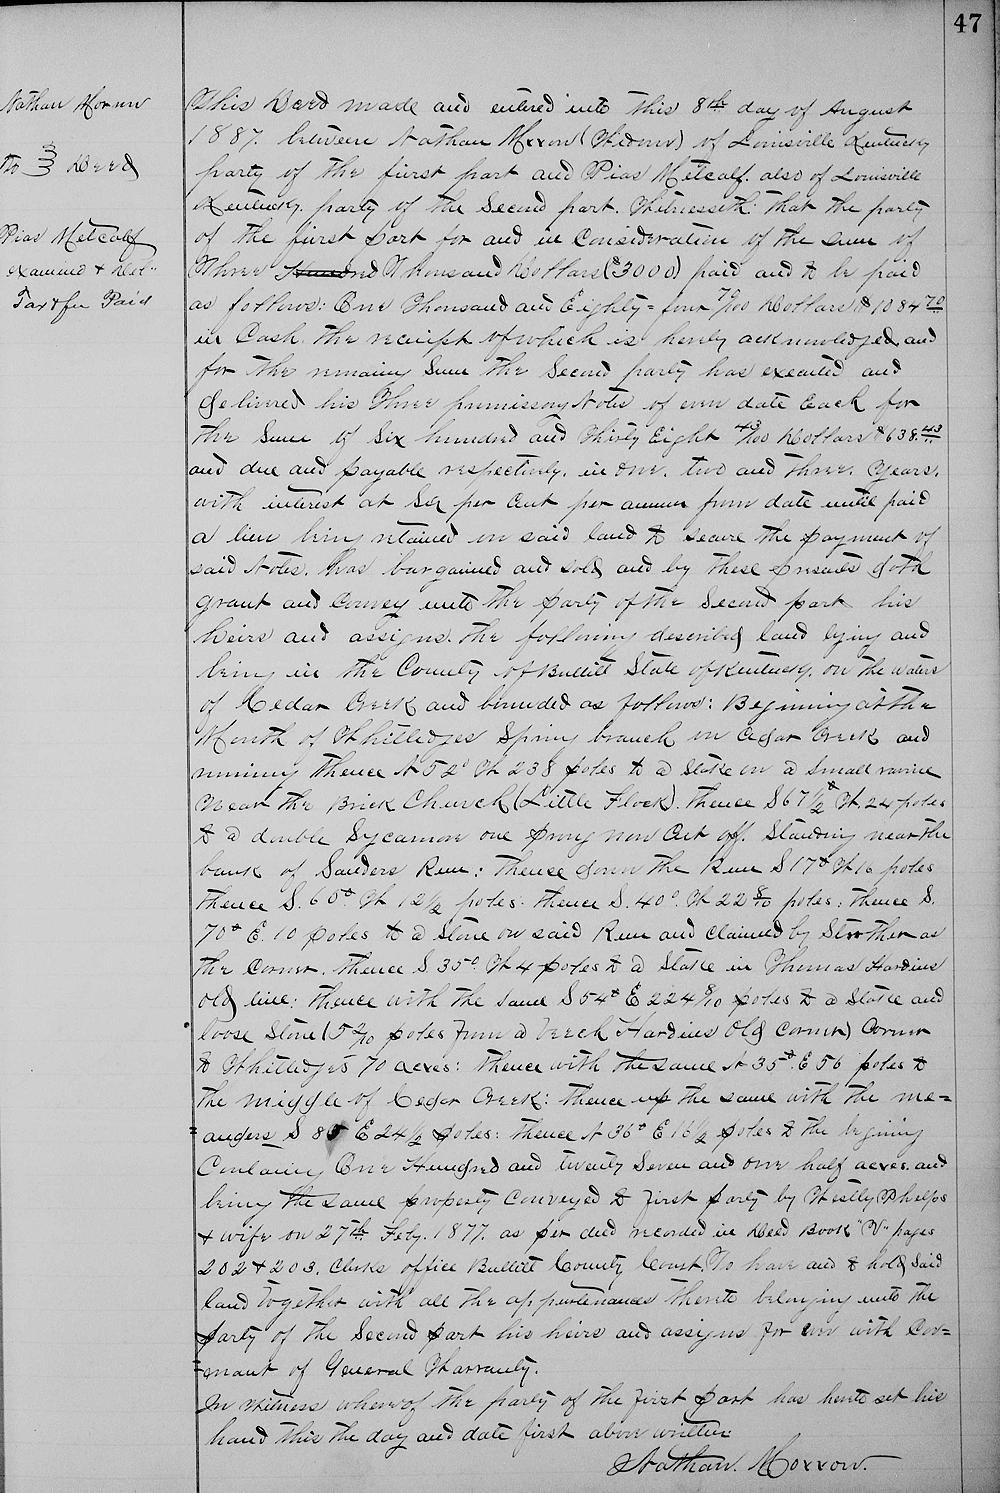 47
Nathan Morrow
to } Deed
Pias Metcalf
examined & del"
Tax & fee Paid
This Deed made and entered into this 8th day of August
1887. between Nathan Morrow (Widower) of Louisville Kentucky
party of the first part and Pias Metcalf. also of Louisville
Kentucky. party of the Second part. Witnesseth: that the party
of the first part for and in Consideration of the sum of
Three Hundred Thousand Dollars ($3000) paid and to be paid
as follows: One Thousand and Eighty=four 70/100 Dollars $1084 70
in Cash. the receipt of which is hereby acknowledged, and
for the remaing Sum the Second party has executed and
delivered his Three promissory Notes of even date Each for
the Sum of Six hundred and Thirty Eight 43/100 Dollars $638.43
and due and payable respectively, in one, two and three. Years.
with interest at Six per Cent per annum from date until paid
a lien being retained on said land to secure the payment of
said Notes. has bargained and sold and by these presents doth
grant and Convey unto the party of the Second part his
heirs and assigns. the following described land lying and
being in the County of Bullitt State of Kentucky, on the waters
of Cedar Creek and bounded as follows: Beginning at the
Mouth of Whitledges Spring branch on Cedar Creek and
running thence N 52° W 238 poles to a Stake on a small ravine
Near the Brick Church (Little Flock). thence S 67 1/2° W. 24 poles
to a double Sycamore one prong now Cut off. Standing near the
bank of Sanders Run: thence down the Run S 17° W 16 poles
thence S. 60° W 12 1/2 poles: thence S. 40° W 22 8/10 poles: thence S.
70° E. 10 poles to a Stone on said Run and claimed by Strother as
the Corner. thence S 35° W 4 poles to a Stake in Thomas Hardins
old line: thence with the same S 54° E 224 8/10 poles to a Stake and
loose Stone (5 2/10 poles from a beech Hardins old Corner) Corner
to Whitledges 70 acres: thence with the same N 35° E 56 poles to
the middle of Cedar Creek: thence up the same with the me=
=anders S 85 E 24 1/2 poles: thence N 36° E 16 1/2 poles to the begining
Containing One Hundred and twenty Seven and one half acres. and
being the same property Conveyed to first party by Westly Phelps
& wife on 27th Feby. 1877. as per deed recorded in Deed Book "V" pages
202 & 203. Clerks office Bullitt County Court. To have and to hold Said
land together with all the appurtenances thereto belonging unto the
party of the Second part his heirs and assigns for ever with Cov=
=enant of General Warranty.
In witness whereof the party of the First part has hereto set his
hand this the day and date first above written
Nathan. Morrow.